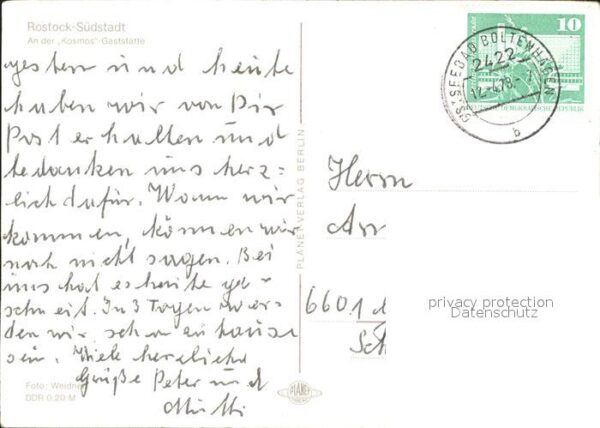 Rostock-Südstadt
An der „Kosmos"-Gaststätte
gestern und heute
haben wir von Dir
Post erhalten und
bedanken uns herz-
lich dafür. Wann wir
kommen, können wir
noch nicht sagen. Bei
uns hat es heute ge-
schneit. In 3 Tagen wer-
den wir schon zuhause
sein. Viele herzliche
Grüße Peter und
Mutti
Foto: Weidner
DDR 0,20 M
PLANET-VERLAG BERLIN
PLANET
10
DEUTSCHE DEMOKRATISCHE REPUBLIK
OSTSEEBAD BOLTENHAGEN
2422
12.-4.78
b
Herrn
6601
Sch
privacy protection
Datenschutz